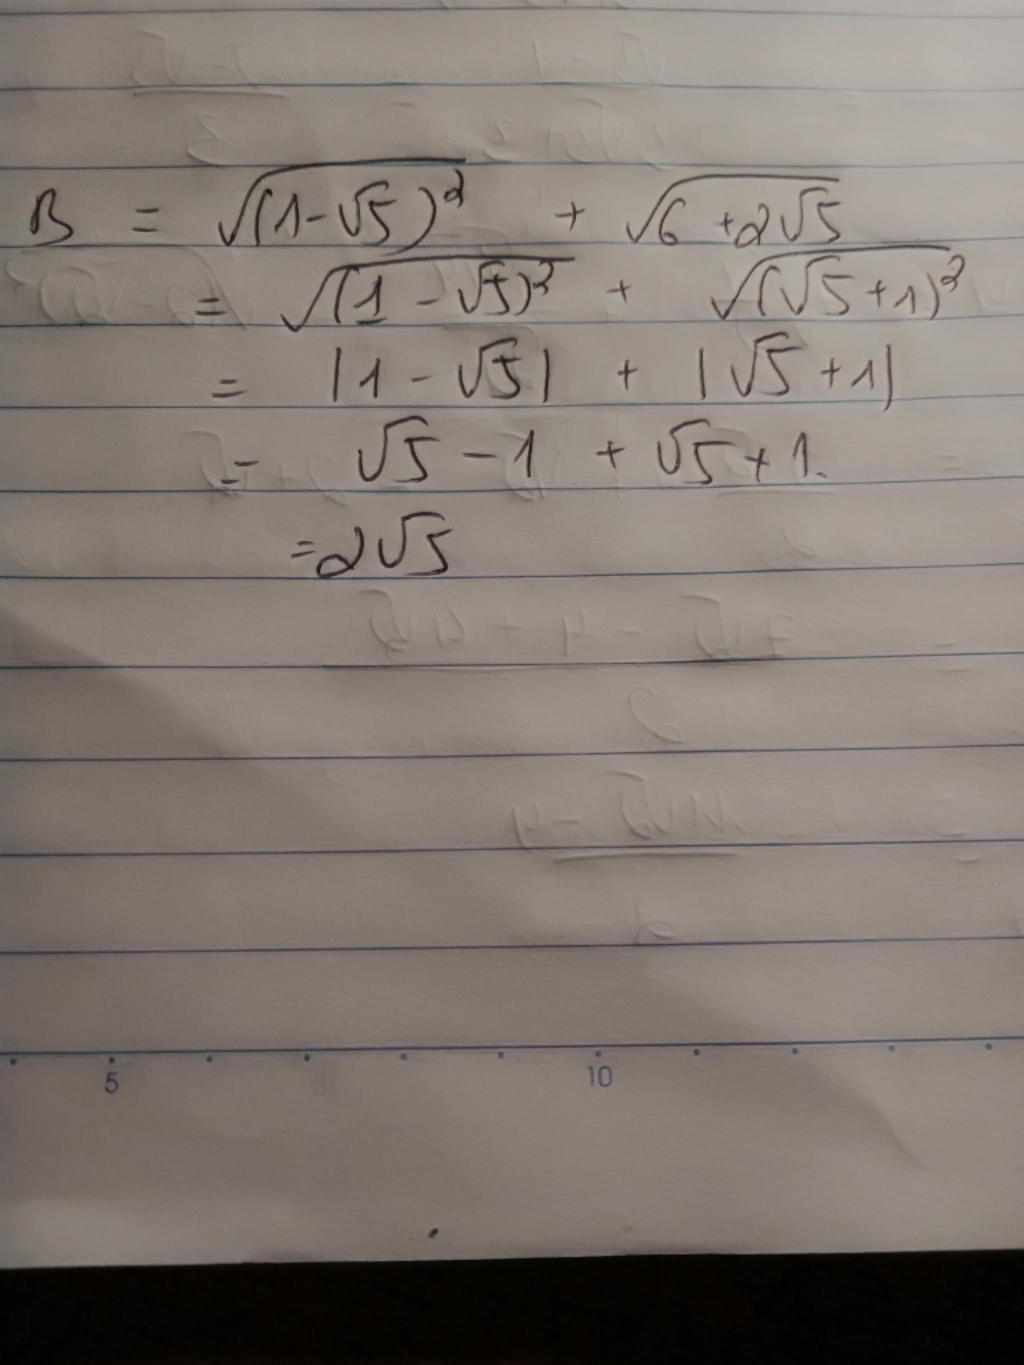 B = √(1-√5)² + √6+2√5
= √(1-√5)² + √(√5+1)²
= |1-√5| + |√5+1|
= √5-1 + √5+1.
=2√5
5 10